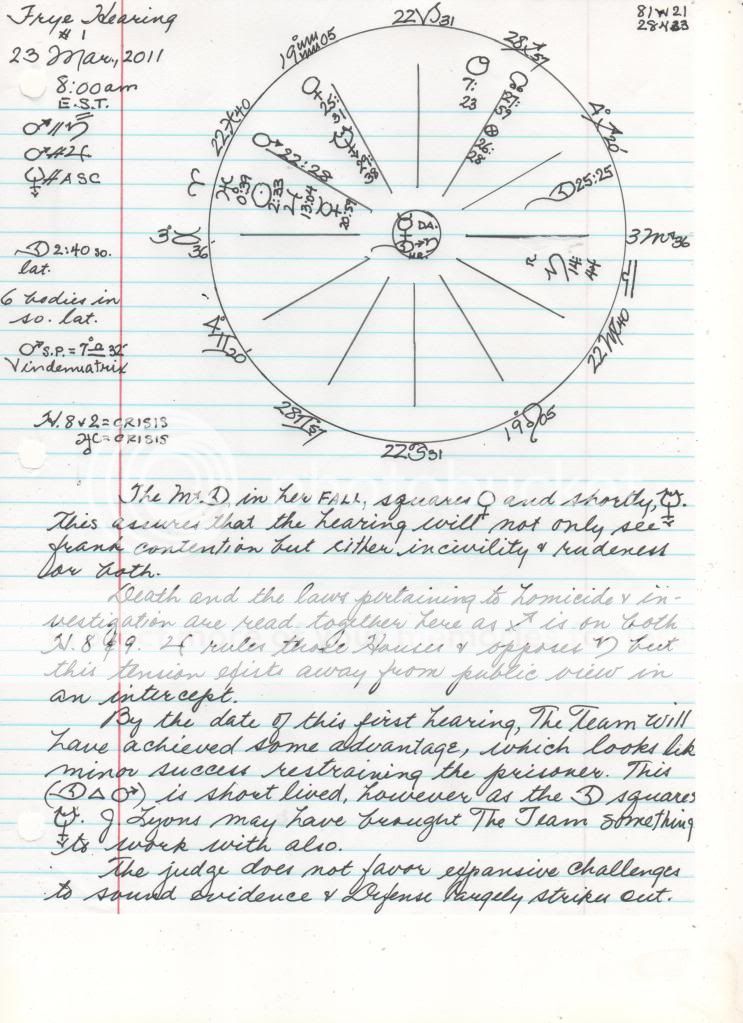 Frye Hearing
#1
23 Mar., 2011
8:00am
E.S.T.
♂∥♄
♂#♃
☿#ASC
☽ 2:40 so.
lat.
6 bodies in
so. lat.
♂ S.P. = 7° ♎ 32'
Vindemiatrix
H. 8 & 2 = CRISIS
♓︎C = CRISIS
81 W 21
28 N 33
22 ♑ 31
28 ♐ 57
4° ♐ 20'
3 ♏ 36
♎
22 ♍ 40
19° ♌ 05
22 ♋ 31
28 ♊ 57
4° ♊ 20'
3° ♉ 36
♈
22 ♓ 40
19 ♒ 05
7:
23
⊗
26:
28
☽ 25:25
♂ 22:28
0:39
☉ 2:33
♃ 13:04
☿ 20:59
R ♄ 14:
44
DA.
HR.
The Mr. ☽, in her FALL, squares ♀ and shortly, ♆.
This assures that the hearing will not only see
frank contention but either incivility & rudeness
or both.
Death and the laws pertaining to homicide & in-
vestigation are read together here as ♐ is on both
H. 8 & 9. ♃ rules those Houses & opposes ♄ but
this tension exists away from public view in
an intercept.
By the date of this first hearing, The Team will
have achieved some advantage, which looks lik
minor success restraining the prisoner. This
(☽ △ ♂) is short lived, however as the ☽ squares
♆. J Lyons may have brought The Team something
to work with also.
The judge does not favor expansive challenges
to sound evidence & Defense largely strikes out.